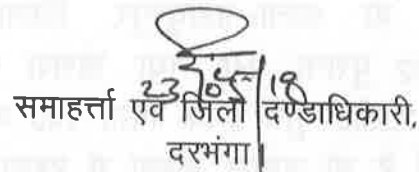 23/05/18
समाहर्त्ता एवं जिला दण्डाधिकारी,
दरभंगा।